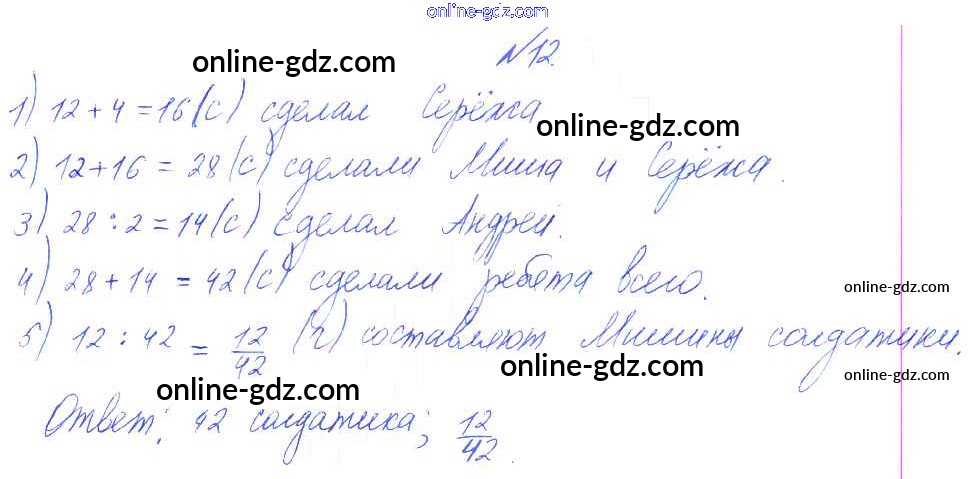 online-gdz.com
№12.
online-gdz.com
1) 12 + 4 = 16 (с) сделал Серёжа
online-gdz.com
2) 12 + 16 = 28 (с) сделали Миша и Серёжа.
3) 28 : 2 = 14 (с) сделал Андрей.
4) 28 + 14 = 42 (с) сделали ребята всего.
online-gdz.com
5) 12 : 42 = 12/42 (ч) составляют Мишины солдатики.
online-gdz.com
online-gdz.com
online-gdz.com
Ответ: 42 солдатика; 12/42.